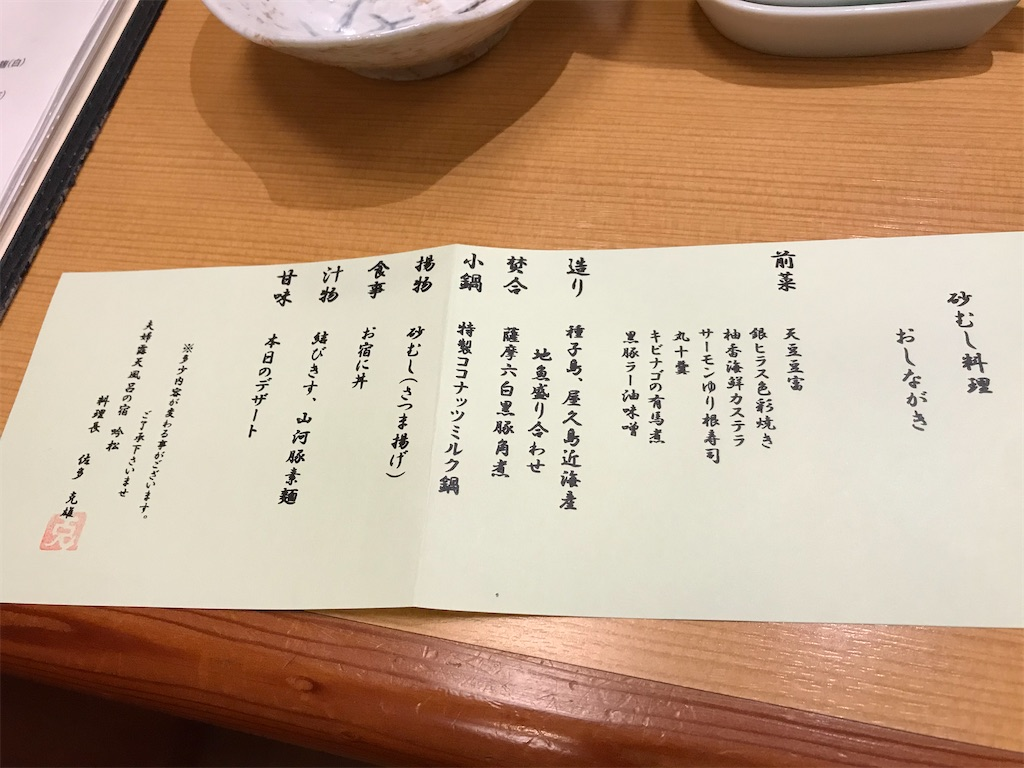 砂むし料理
おしながき
前菜
天豆豆富
銀ヒラス色彩焼き
柚香海鮮カステラ
サーモンゆり根寿司
丸十羹
キビナゴの有馬煮
黒豚ラー油味噌
造り
種子島、屋久島近海産
地魚盛り合わせ
焚合
薩摩六白黒豚角煮
小鍋
特製ココナッツミルク鍋
揚物
砂むし(さつま揚げ)
食事
お宿に丼
汁物
結びきす、山河豚素麺
甘味
本日のデザート
※多少内容が変わる事がございます。
ご了承下さいませ
夫婦露天風呂の宿 吟松
料理長 佐多 克雄
克